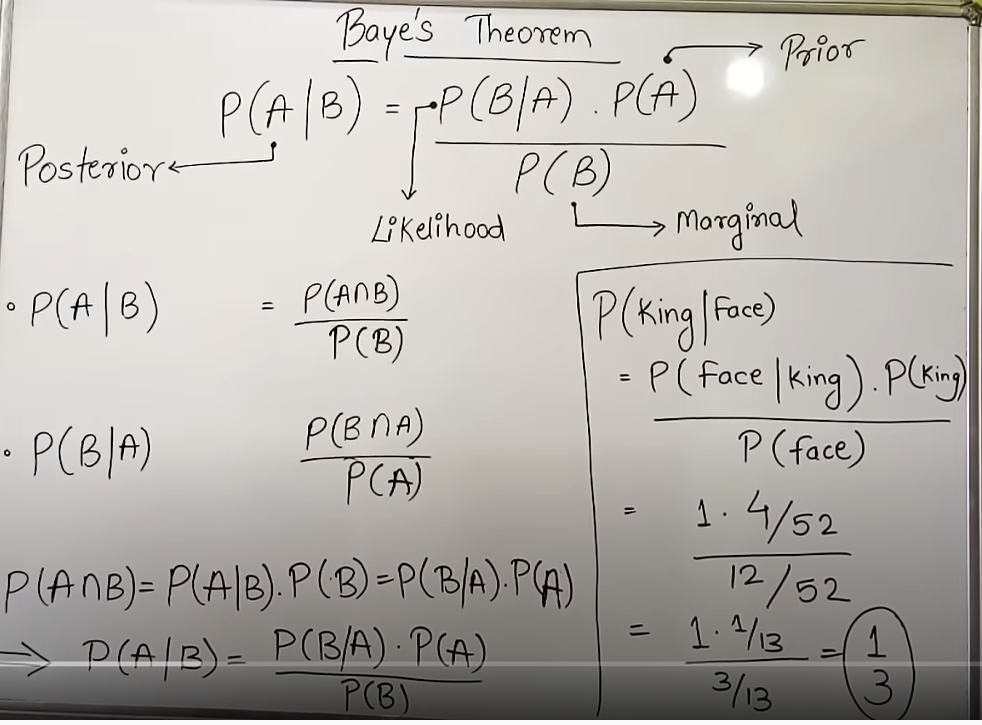 Baye's Theorem
P(A|B) = P(B|A) . P(A)
P(B)
Prior
Posterior
Likelihood
Marginal
• P(A|B) = P(A∩B)
P(B)
• P(B|A) P(B∩A)
P(A)
P(A∩B) = P(A|B). P(B) = P(B/A). P(A)
⇒ P(A|B) = P(B/A) · P(A)
P(B)
P(King|Face)
= P(Face|King) . P(King)
P(face)
= 1 · 4/52
12/52
= 1 · 1/13 = 1
3/13 3